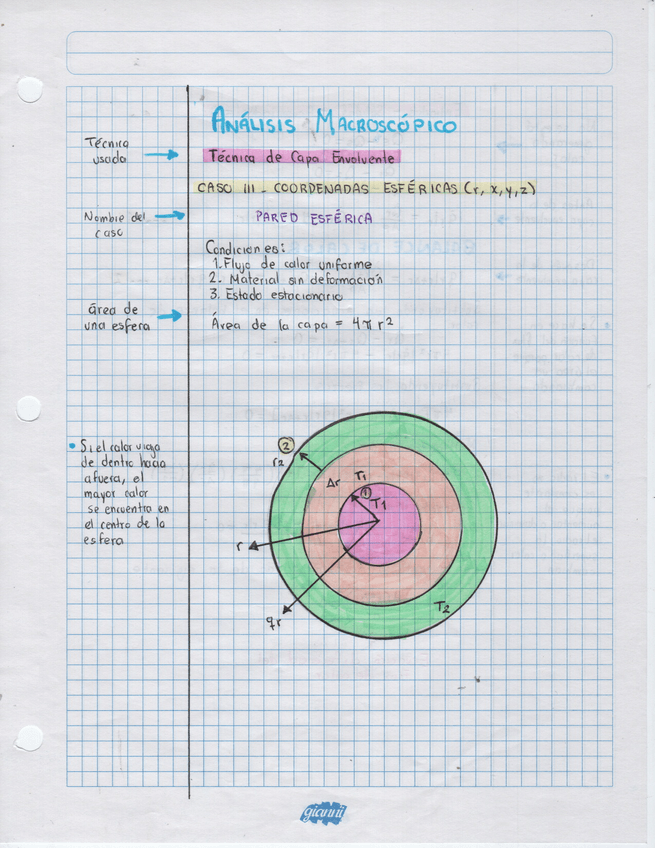 ANÁLISIS MACROSCÓPICO
Técnica
usada
Técnica de Capa Envolvente
CASO III - COORDENADAS ESFÉRICAS (r, x, y, z)
Nombre del
caso
PARED ESFÉRICA
Condiciones:
1. Flujo de calor uniforme
2. Material sin deformación
3. Estado estacionario
área de
una esfera
Área de la capa = 4πr²
• Si el calor viaja
de dentro hacia
afuera, el
mayor calor
se encuentra en
el centro de la
esfera
2
r2
Δr
T1
1
T1
r
qr
T2
gianni